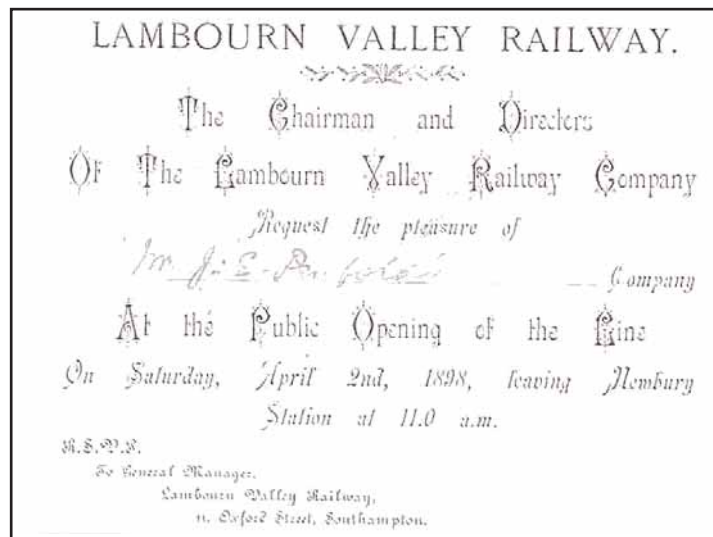 LAMBOURN VALLEY RAILWAY.
The Chairman and Directors
Of The Lambourn Valley Railway Company
Request the pleasure of
Mr. J. E. Company
At the Public Opening of the Line
On Saturday, April 2nd, 1898, leaving Newbury
Station at 11.0 a.m.
R.S.V.P.
To General Manager,
Lambourn Valley Railway,
11. Oxford Street, Southampton.